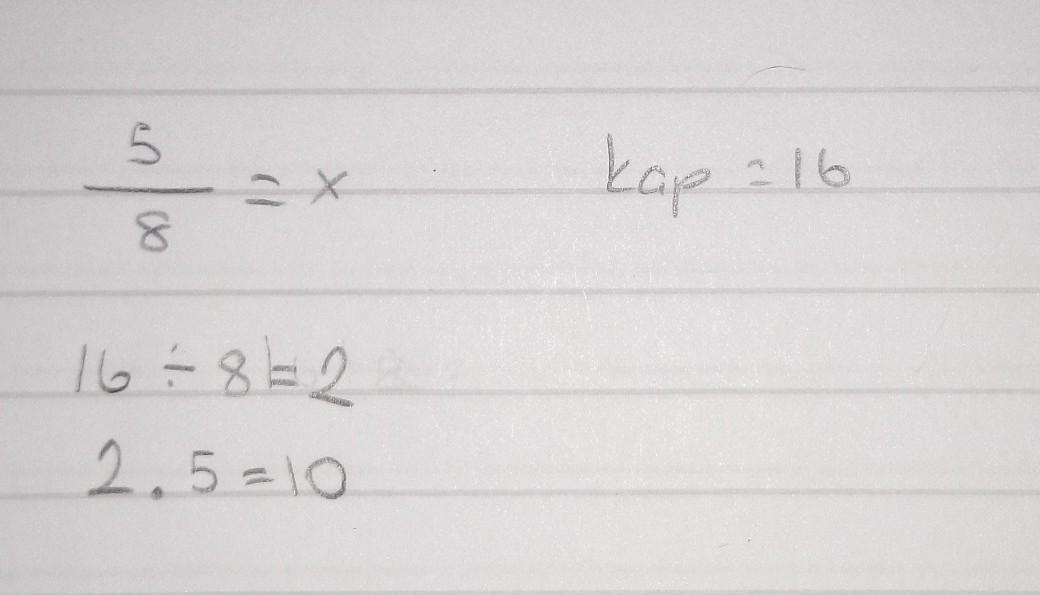 5/8 = x kap = 16
16 ÷ 8 = 2
2 . 5 = 10